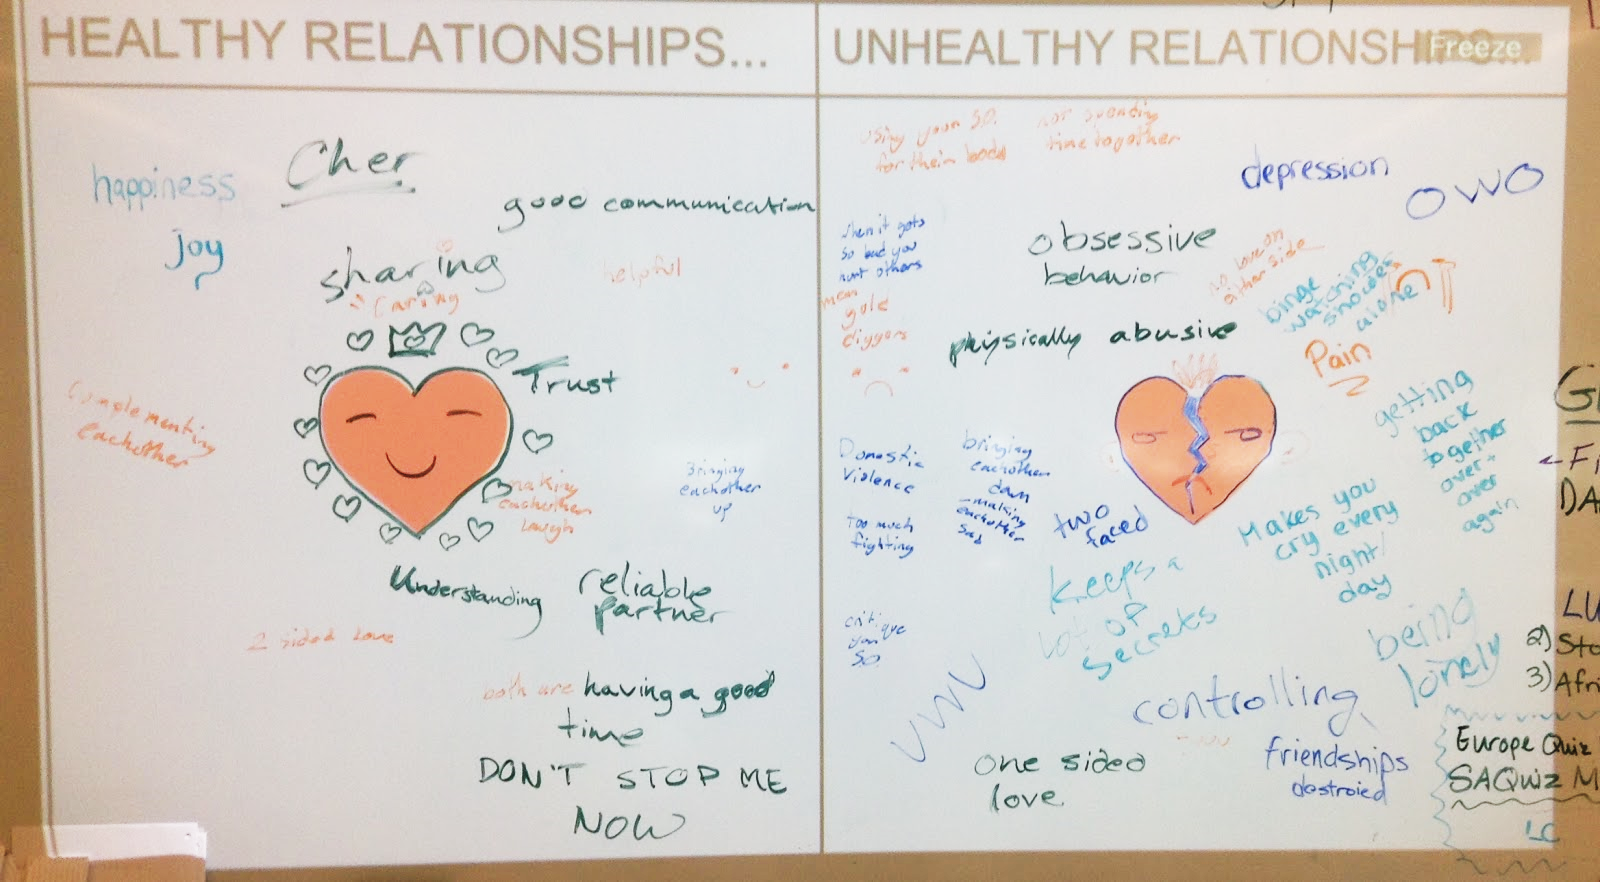 HEALTHY RELATIONSHIPS...
happiness
Cher
good communication
joy
sharing
caring
helpful
Trust
Complementing
eachother
making
eachother
laugh
Bringing
eachother
up
Understanding
reliable
partner
2 sided love
both are having a good
time
DON'T STOP ME
NOW
UNHEALTHY RELATIONSHIPS...
Freeze
using your S.O.
for their body
not spending
time together
depression
OWO
when it gets
so bad you
hurt others
obsessive
behavior
no love on
either side
binge
watching
alone
men
gold
diggers
physically abusive
Pain
getting
back
together
over +
over
again
Domestic
Violence
bringing
eachother
down
- making
eachother
sad
too much
fighting
two
faced
Makes you
cry every
night/
day
keeps a
lot of
secrets
critique
your
SO
being
lonely
UWU
controlling
one sided
love
friendships
destroied
FI
DA
LU
2) Sto
3) Afri
Europe Quiz
SA Quiz M
LC